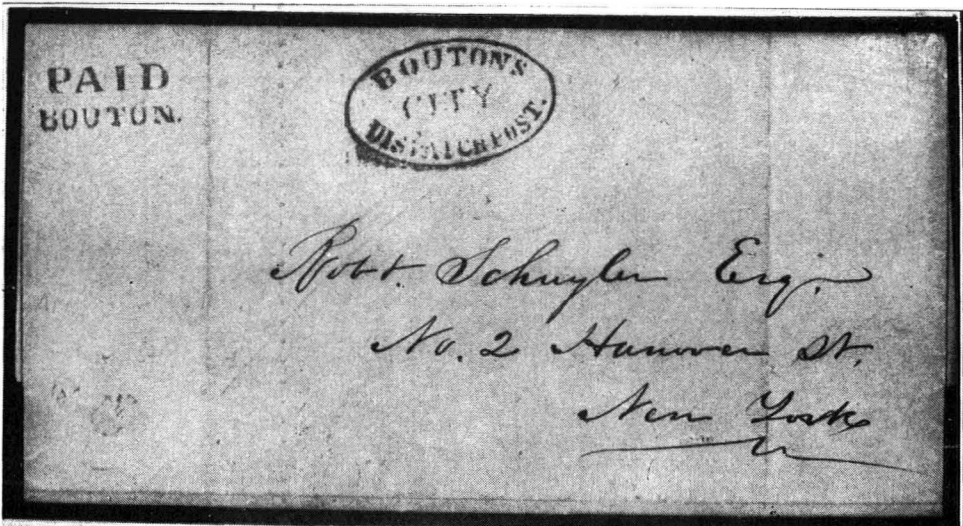 PAID
BOUTON.
BOUTONS
CITY
DISPATCH POST.
Robt. Schuyler Esq.
No. 2 Hanover St.
New York